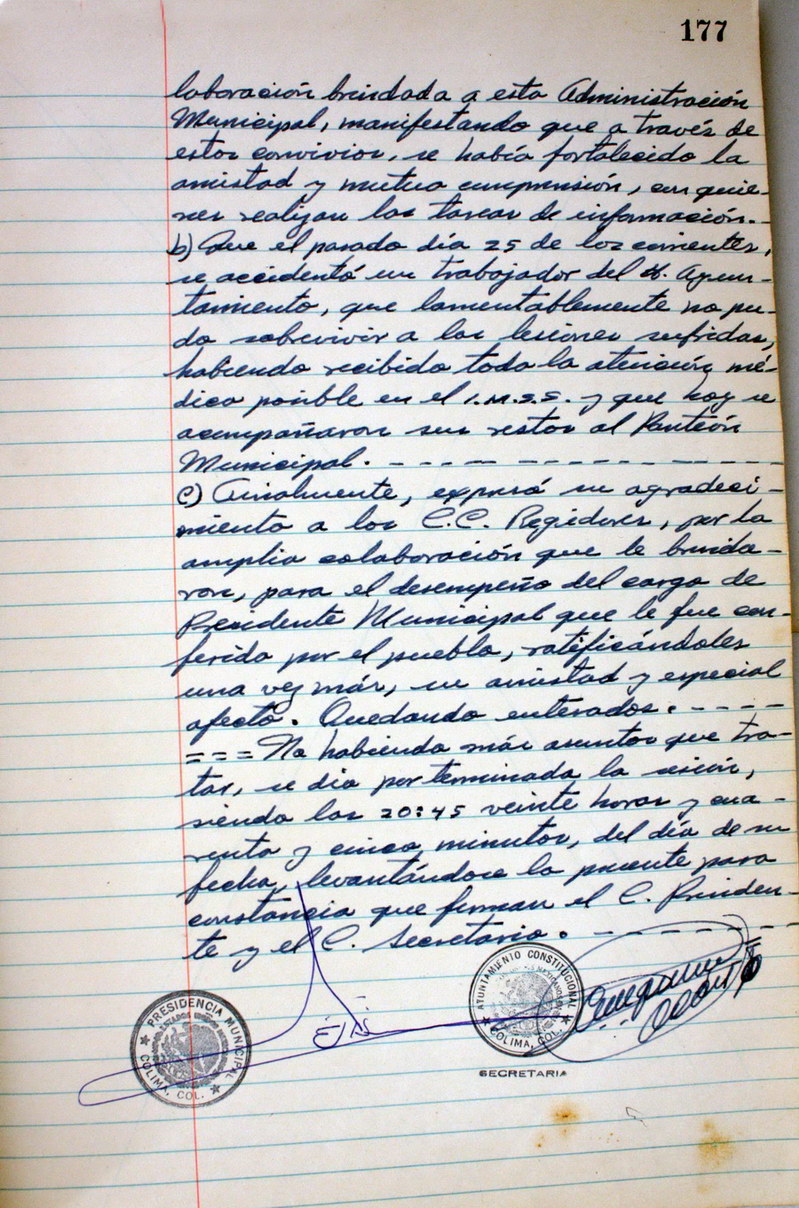 177
laboración brindada a esta Administración
Municipal, manifestando que a través de
estos convivios, se había fortalecido la
amistad y mutua comprensión, con quie-
nes realizan las tareas de información.-
b) Que el pasado día 25 de los corrientes,
se accidentó un trabajador del H. Ayun-
tamiento, que lamentablemente no pu-
do sobrevivir a las lesiones sufridas,
habiendo recibido toda la atención mé-
dica posible en el I.M.S.S. y que hoy se
acompañaron sus restos al Panteón
Municipal. - - - - - - - - - - - - - - -
c) Finalmente, expresó su agradeci-
miento a los C.C. Regidores, por la
amplia colaboración que le brinda-
ron, para el desempeño del cargo de
Presidente Municipal que le fue con-
ferido por el pueblo, ratificándoles
una vez más, su amistad y especial
afecto. Quedando enterados. - - - -
= = = No habiendo más asuntos que tra-
tar, se dio por terminada la sesión,
siendo las 20:45 veinte horas y cua-
renta y cinco minutos, del día de su
fecha, levantándose la presente para
constancia que firman el C. Presiden-
te y el C. Secretario. - - - - - - - - -
PRESIDENCIA MUNICIPAL
COLIMA, COL.
AYUNTAMIENTO CONSTITUCIONAL
COLIMA, COL.
SECRETARIA